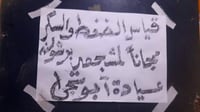 قياس الضغط والسكر
مجاناً لمشجعين بوشوية
عيادة أبو